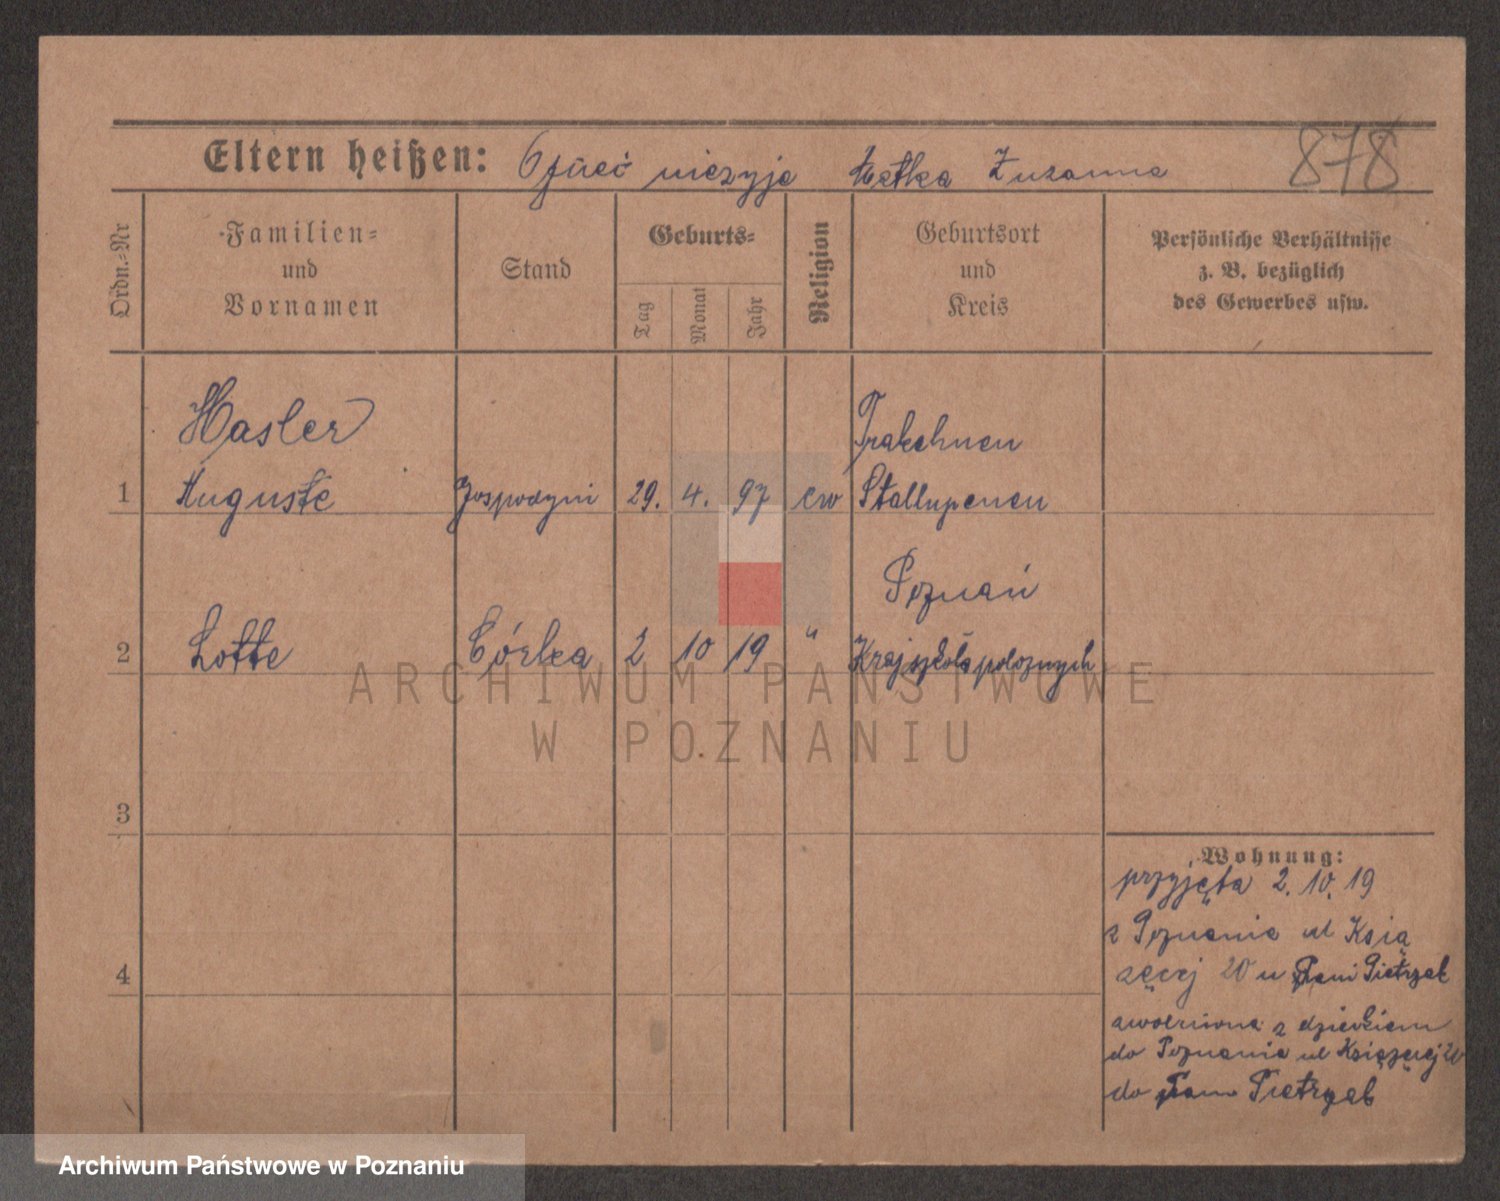 Eltern heißen: Ojciec nieżyje Matka Zuzanna 878
Ordn.-Nr
Familien-
und
Vornamen
Stand
Geburts-
Tag
Monat
Jahr
Religion
Geburtsort
und
Kreis
Persönliche Verhältnisse
z. B. bezüglich
des Gewerbes usw.
Hasler Trakehnen
1 Auguste gospodyni 29. 4. 97 ew Stallupenen
Poznań
2 Lotte Córka 2 10 19 " Kraj szkoła położnych
3
4
Wohnung:
przyjęta 2. 10. 19
z Poznania ul Ksią
żęcej 20 u Pani Pietrzak
zwolniona z dzieckiem
do Poznania ul Książęcej 20
do Pani Pietrzak
ARCHIWUM PAŃSTWOWE
W POZNANIU
Archiwum Państwowe w Poznaniu